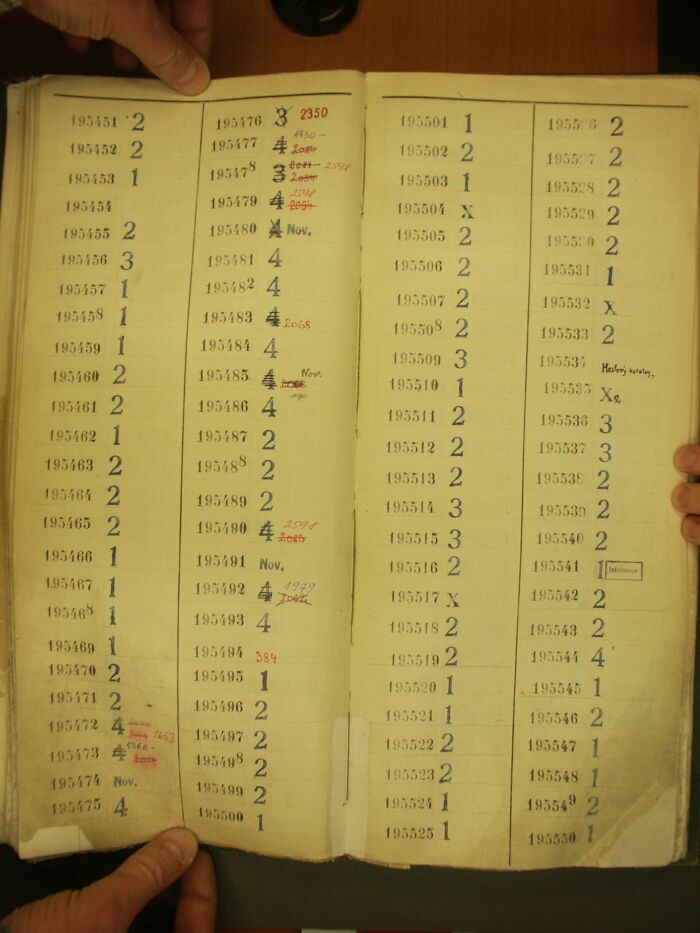 195451 2
195452 2
195453 1
195454
195455 2
195456 3
195457 1
195458 1
195459 1
195460 2
195461 2
195462 1
195463 2
195464 2
195465 2
195466 1
195467 1
195468 1
195469 1
195470 2
195471 2
195472 4 2653
195473 4 1366-
195474 Nov.
195475 4
195476 3 2350
195477 4 1930-
2084
195478 3 2084 2578
2084
195479 4 2578
2084
195480 4 Nov.
195481 4
195482 4
195483 4 2068
195484 4
195485 4 Nov.
195486 4
195487 2
195488 2
195489 2
195490 4 2578
195491 Nov.
195492 4 1979
195493 4
195494 384
195495 1
195496 2
195497 2
195498 2
195499 2
195500 1
195501 1
195502 2
195503 1
195504 x
195505 2
195506 2
195507 2
195508 2
195509 3
195510 1
195511 2
195512 2
195513 2
195514 3
195515 3
195516 2
195517 x
195518 2
195519 2
195520 1
195521 1
195522 2
195523 2
195524 1
195525 1
195526 2
195527 2
195528 2
195529 2
195530 2
195531 1
195532 x
195533 2
195534 Heslový katalog.
195535 x2
195536 3
195537 3
195538 2
195539 2
195540 2
195541 1 Informace
195542 2
195543 2
195544 4
195545 1
195546 2
195547 1
195548 1
195549 2
195550 1